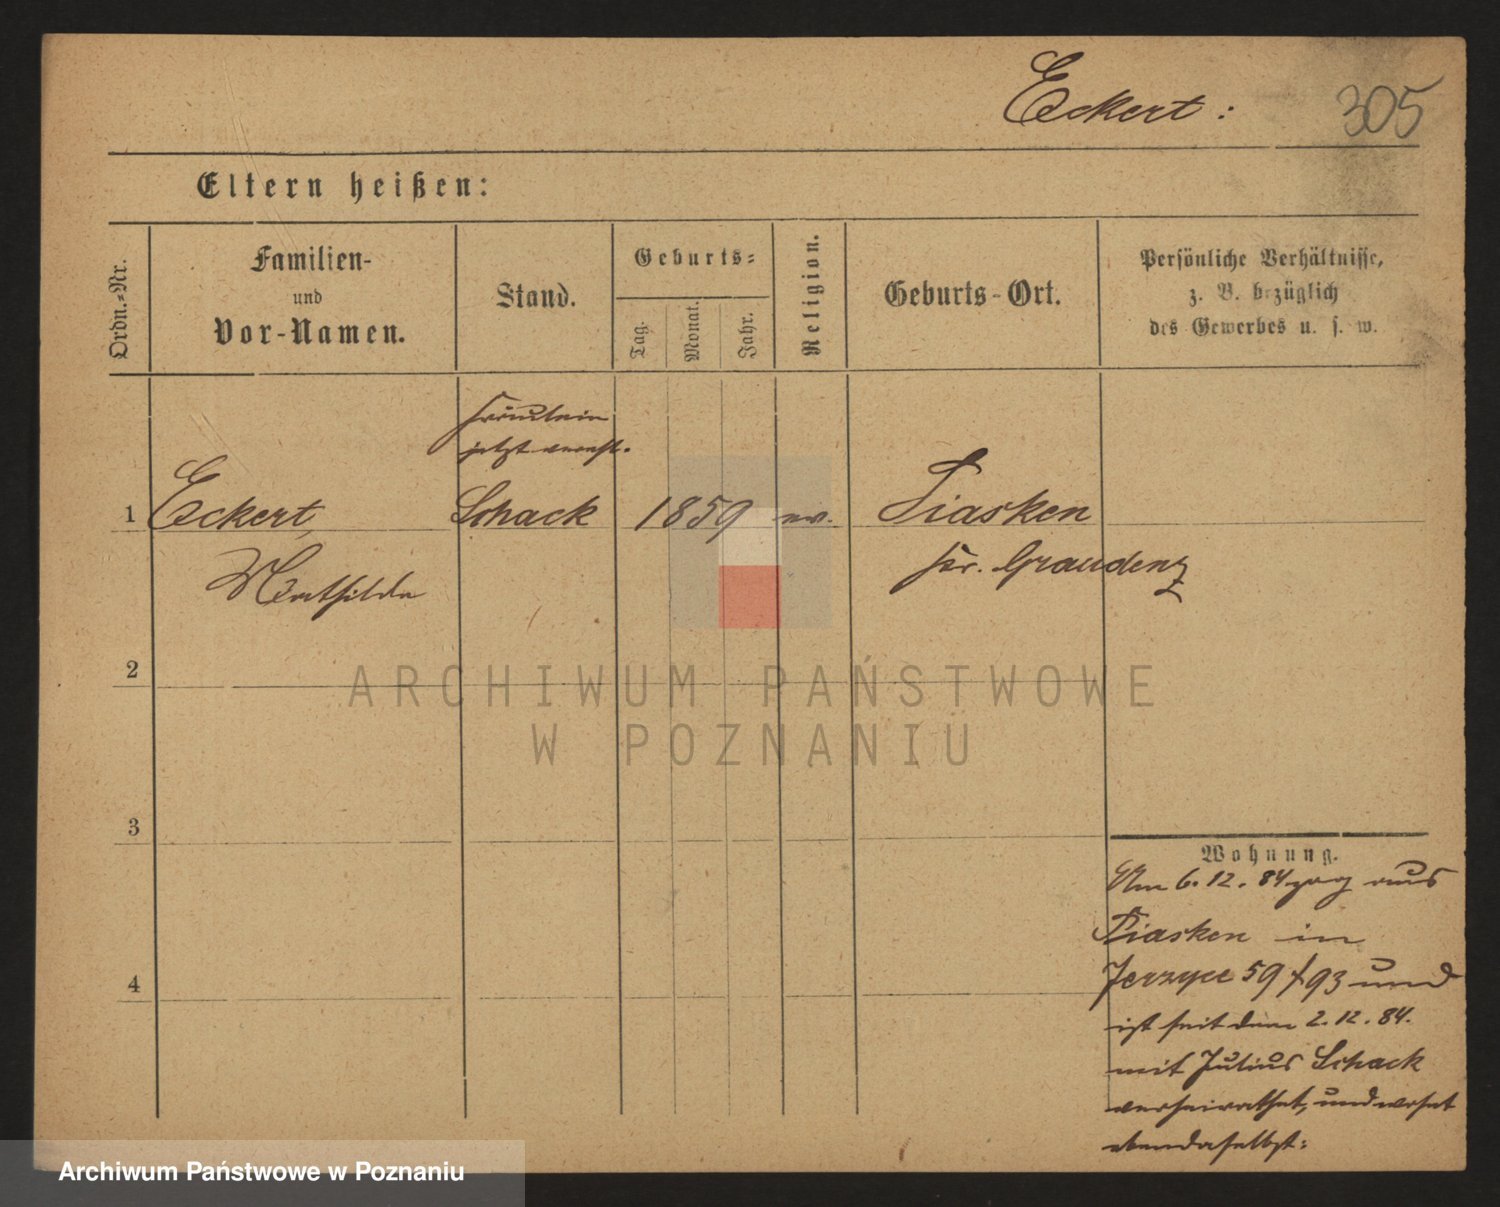 Eckert: 305
Eltern heißen:
Ordn.-Nr.
Familien-
und
Vor-Namen.
Stand.
Geburts-
Tag.
Monat.
Jahr.
Religion.
Geburts-Ort.
Persönliche Verhältnisse,
z. B. bezüglich
des Gewerbes u. s. w.
Fräulein
jetzt vereh.
1 Eckert, Schack 1859 ev. Piasken
Mathilde Kr. Graudenz
2
ARCHIWUM PAŃSTWOWE
W POZNANIU
3
Wohnung.
Am 6.12.84 zog aus
Piasken in
Jerzyce 59/93 und
ist seit dem 2.12.84.
mit Julius Schack
verheirathet, und wohnt
ebendaselbst:
4
Archiwum Państwowe w Poznaniu